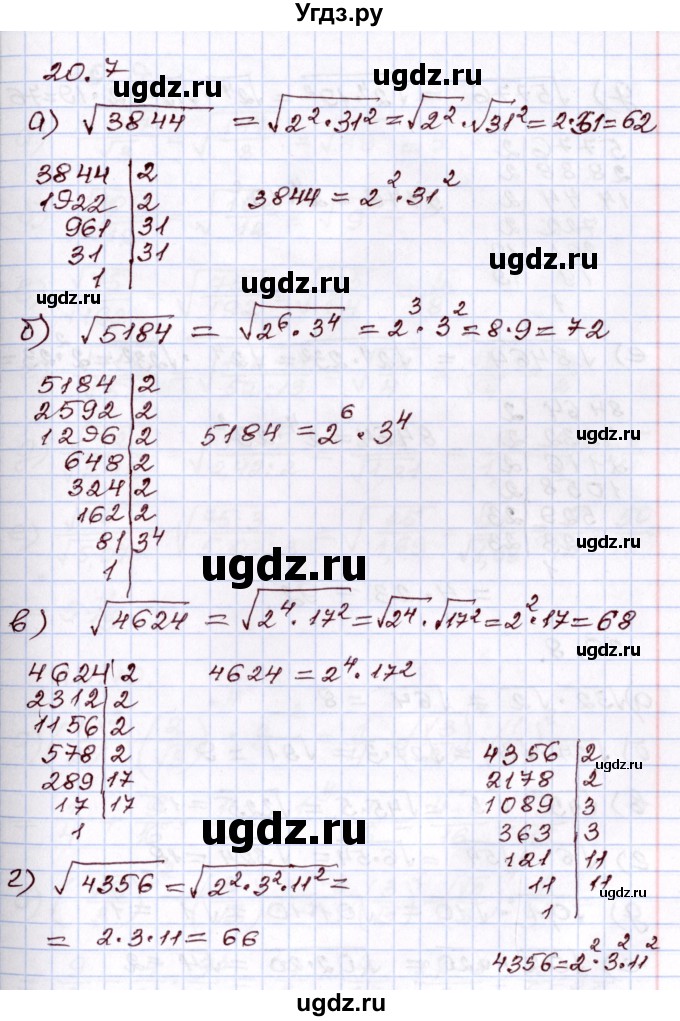 Угдз.ру
20.7
ugdz.ru
ugdz.ru
а) √3844 = √2²·31² = √2²·√31² = 2·31 = 62
3844 | 2
1922 | 2
961 | 31
31 | 31
1
3844 = 2²·31²
ugdz.ru
ugdz.ru
ugdz.ru
б) √5184 = √2⁶·3⁴ = 2³·3² = 8·9 = 72
ugdz.ru
5184 | 2
2592 | 2
1296 | 2
648 | 2
324 | 2
162 | 2
81 | 3⁴
1
5184 = 2⁶·3⁴
ugdz.ru
ugdz.ru
ugdz.ru
в) √4624 = √2⁴·17² = √2⁴·√17² = 2²·17 = 68
ugdz.ru
4624 | 2
2312 | 2
1156 | 2
578 | 2
289 | 17
17 | 17
1
4624 = 2⁴·17²
ugdz.ru
ugdz.ru
4356 | 2
2178 | 2
1089 | 3
363 | 3
121 | 11
11 | 11
1
г) √4356 = √2²·3²·11² =
ugdz.ru
= 2·3·11 = 66
4356 = 2²·3²·11²
ugdz.ru